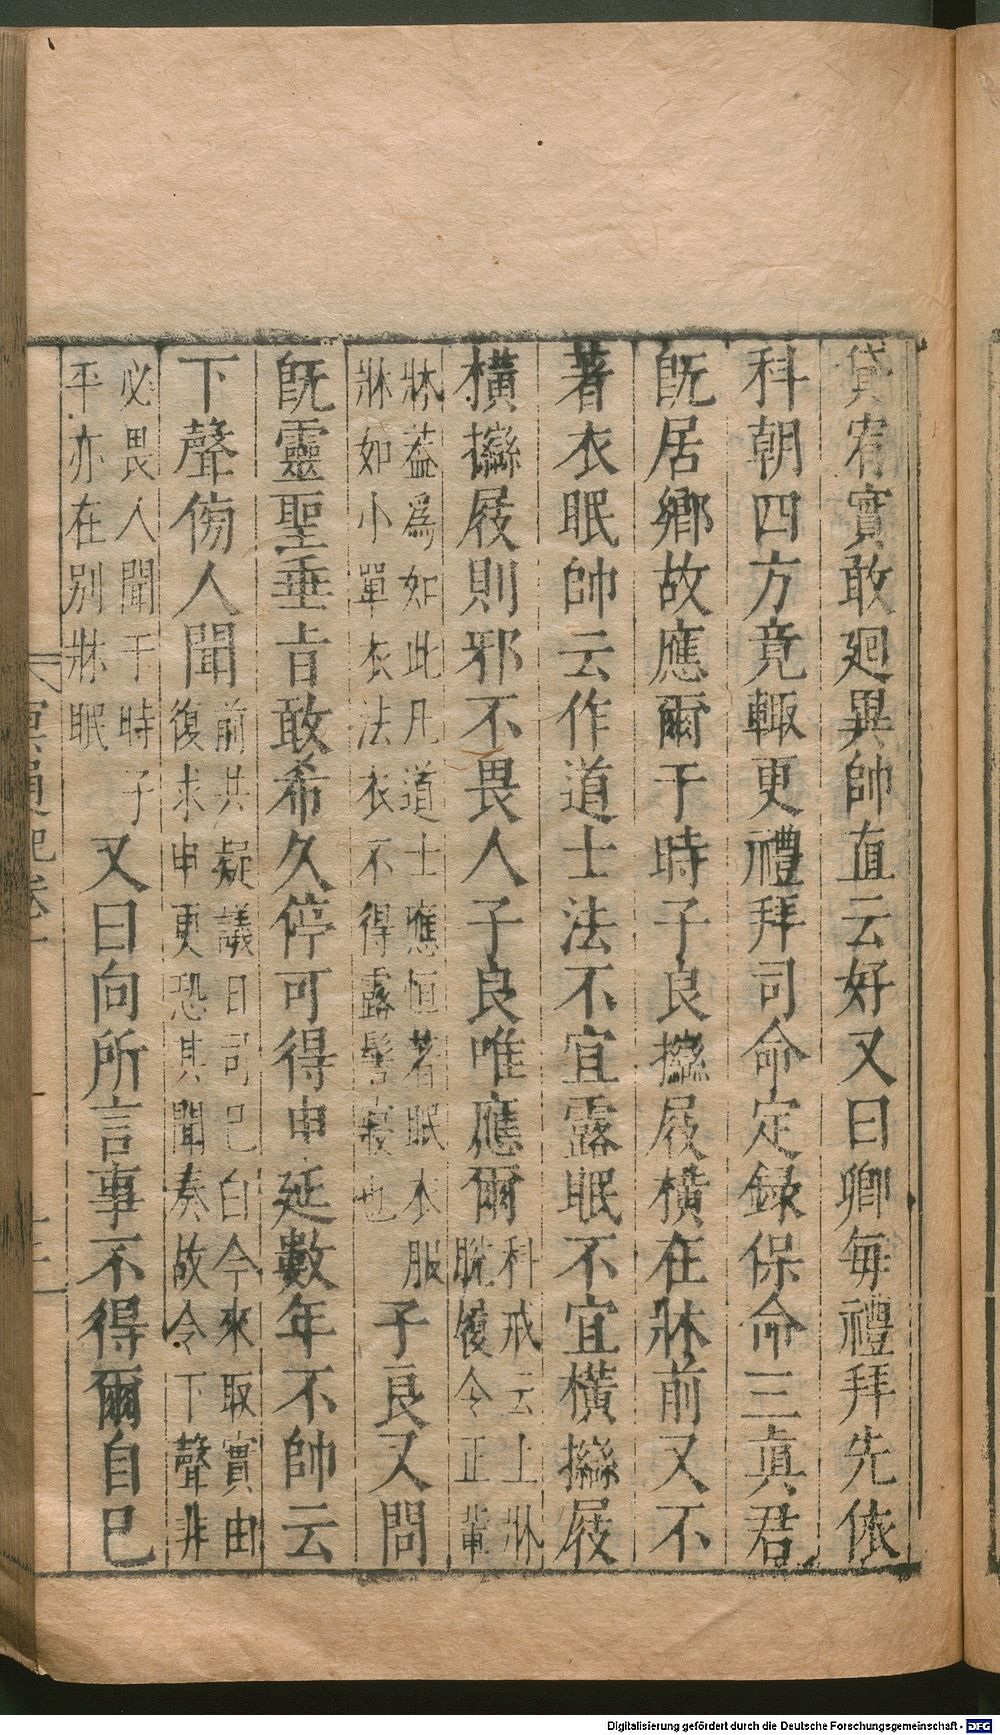 貸宥實敢廻異帥直云好又曰卿每禮拜先依
科朝四方竟輙更禮拜司命定録保命三真君
旣居鄉故應爾于時子良攨屐橫在牀前又不
著衣眠帥云作道士法不宜露眠不宜橫攨屐
橫攨屐則邪不畏人子良唯應爾
科戒云上牀
脫履令正輩
牀葢爲如此凡道士應恒著眠衣服
牀如小單衣法衣不得露髻寢也
子良又問
旣靈聖垂旨敢希久停可得申延數年不帥云
下聲傍人聞
前共疑議曰司已白今來取實由
復求申更恐其聞奏故令下聲非
必畏人聞于時子
平亦在別牀眠
又曰向所言事不得爾自已
冥通記卷一
Digitalisierung gefördert durch die Deutsche Forschungsgemeinschaft - DFG